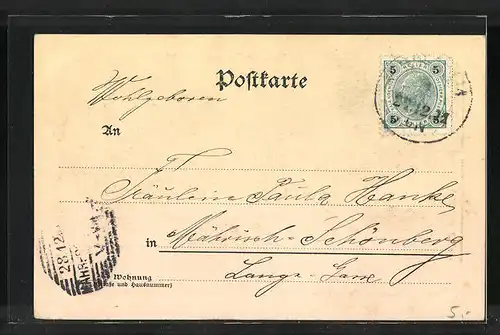 Postkarte
5 5
Wohlgeboren
An
Fräulein Paula Hanke
in Mährisch-Schönberg
28.12
Wohnung
Lange-Gasse
und Hausnummer)
5,-